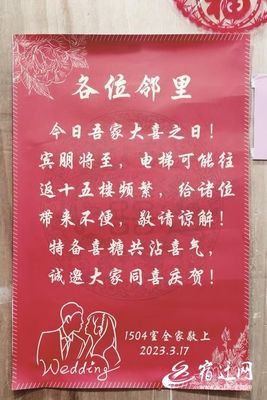 各位邻里
今日吾家大喜之日！
宾朋将至，电梯可能往
返十五楼频繁，给诸位
带来不便，敬请谅解！
特备喜糖共沾喜气，
诚邀大家同喜庆贺！
1504室全家敬上
2023.3.17
Wedding
宿迁网